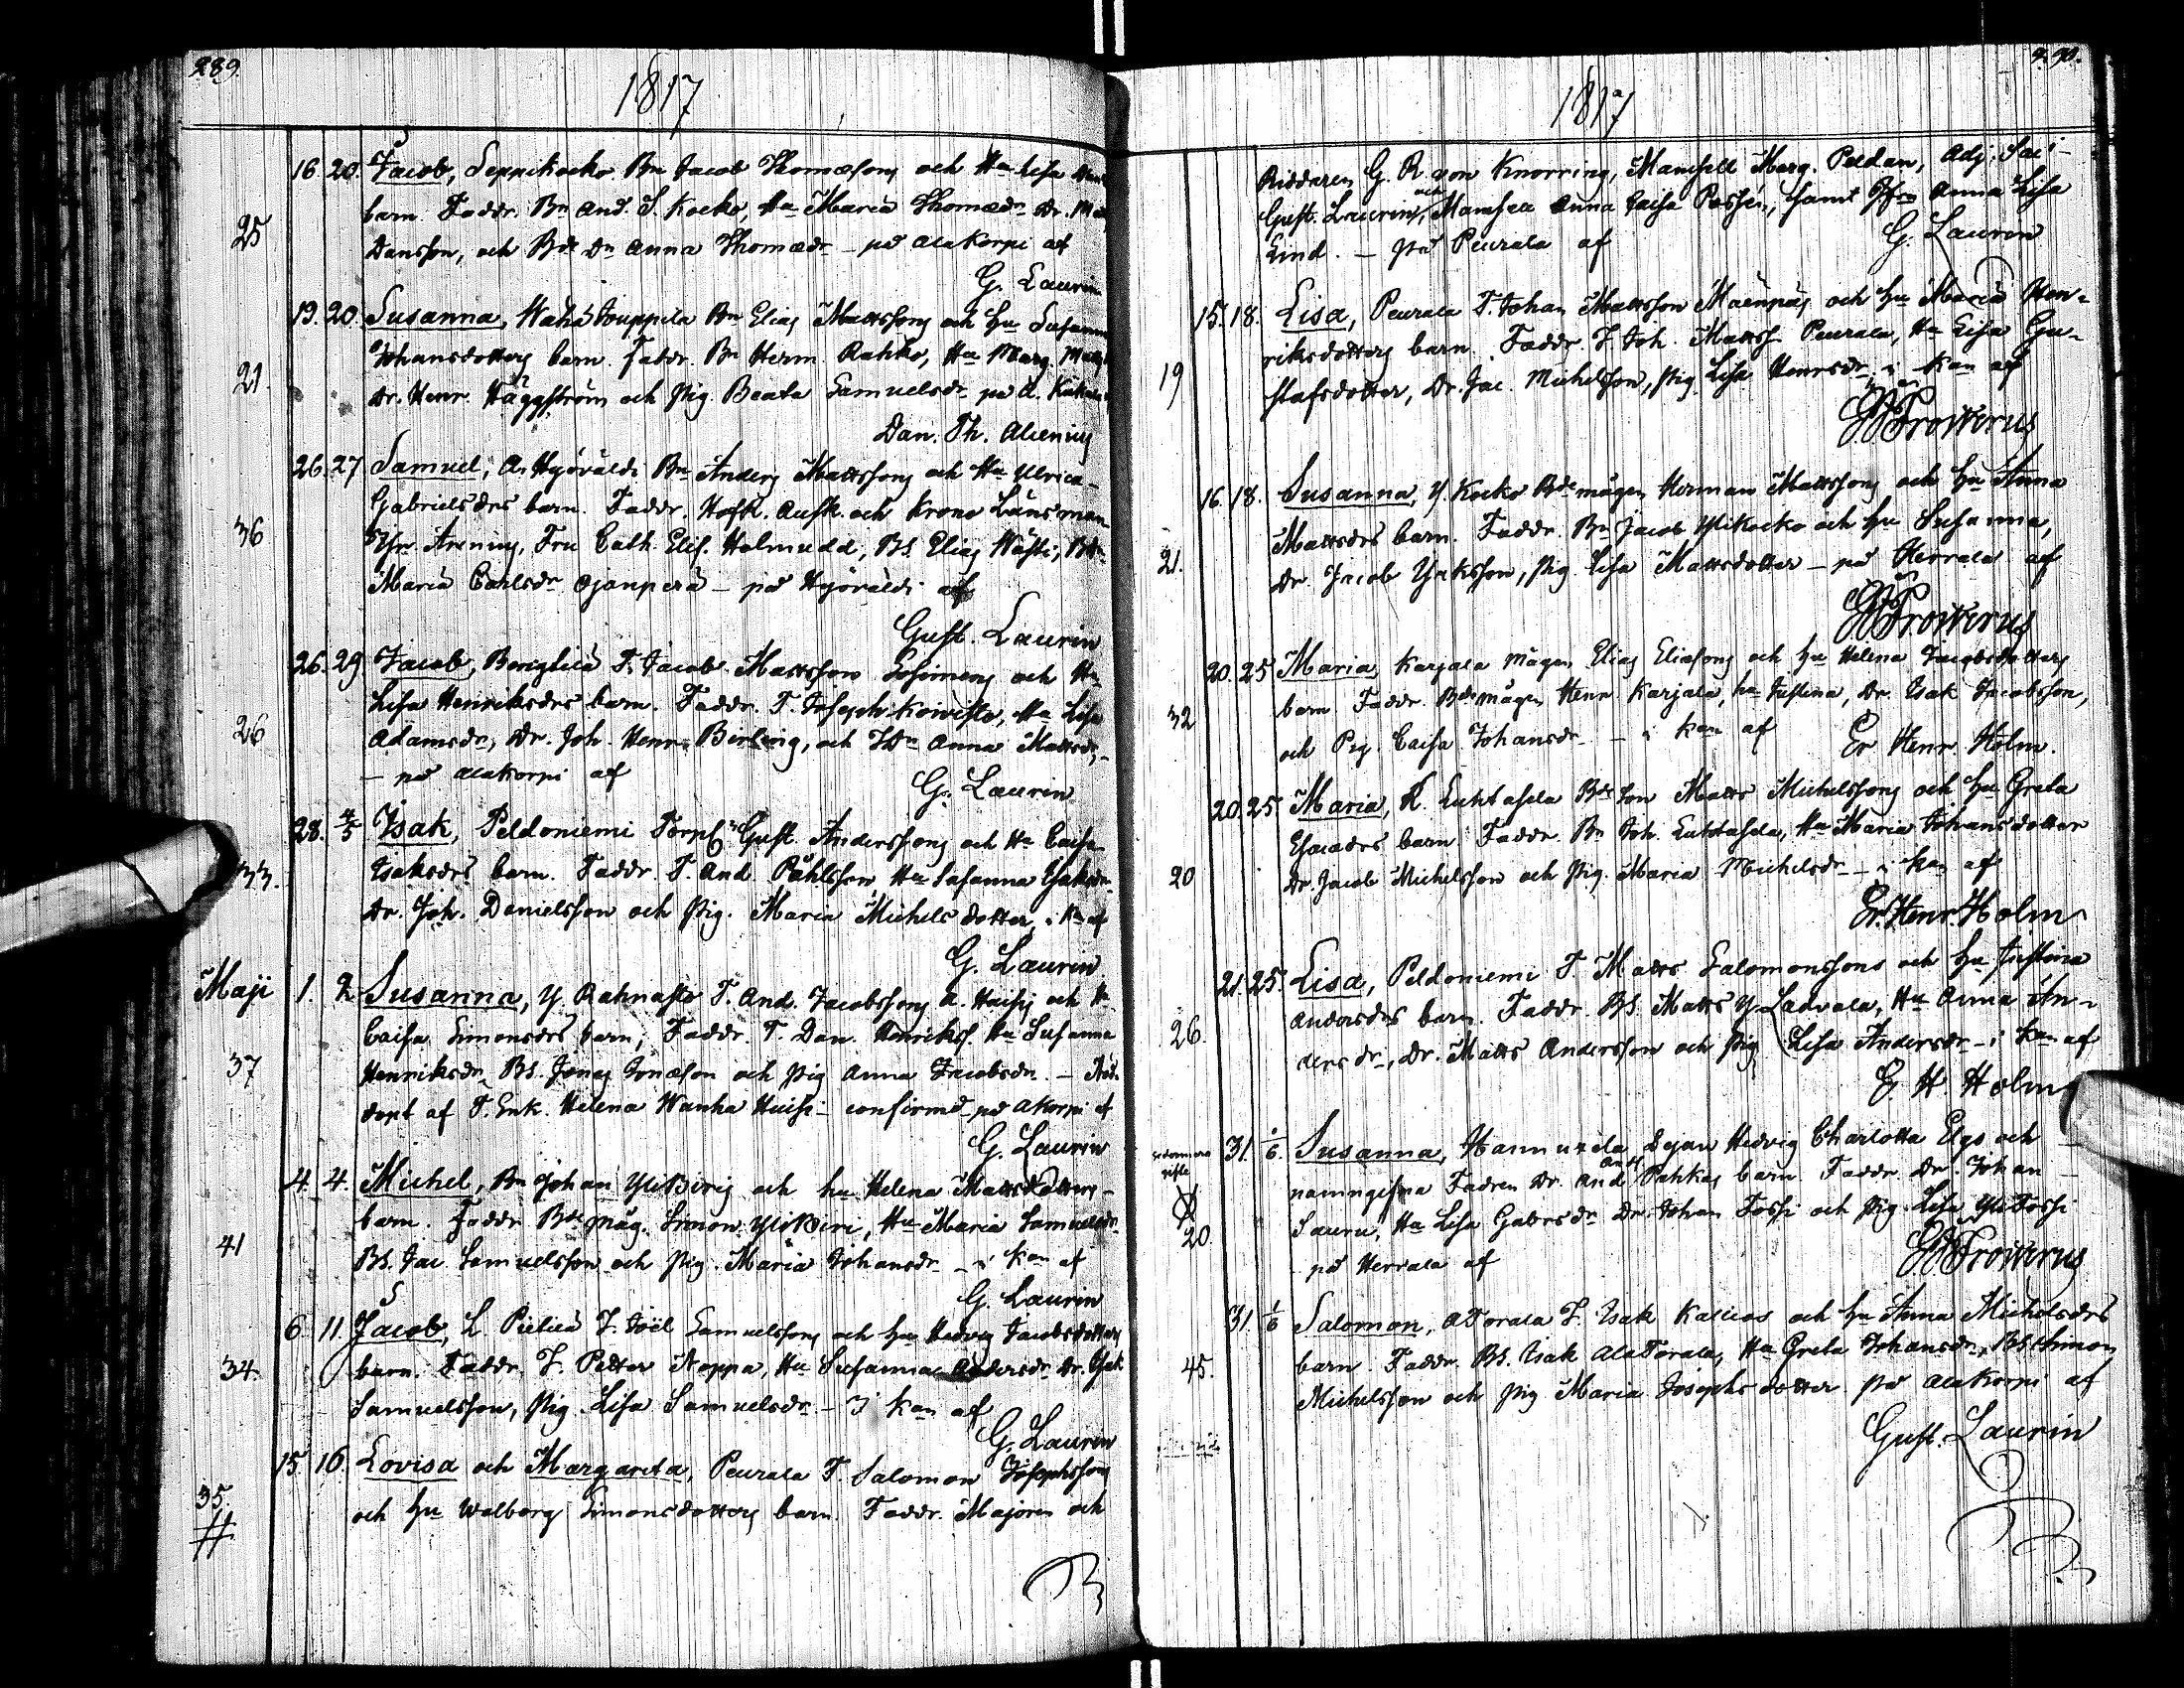 289.
1817
16. 20. Jacob, Seppikocko Bn Jacob Thomæsons och Hu Lisa
25
barn. Faddr. Bn And. S. Kocko, Hu Maria Thomædr Dr.
Dansson, och Bde Dr Anna Thomædr – på Alakorpi af
G. Laurin
19. 20. Susanna, Wähä Jouppila Bn Elias Mattssons och Hu Susanna
21.
Johansdotters barn. Faddr. Bn Herm. Rahko, Hu Marg.
Dr. Henr. Häggström och Pig. Beata Samuelsdr på
Dan. Th. Alcenius
26. 27 Samuel, A. Hyöväldi Bn Anders Mattssons och Hu Ulrica
36
Gabrielsdrs barn. Faddr. Hofk. Ausk. och Krono Länsman
Arenius, Fru Cath. Elis. Holmudd, BS. Elias
Maria Carlsdr Ojanperä – på Hyöväldi af
Gust. Laurin
26. 29. Jacob, T. Jacob Mattsson och Hu
26
Lisa Henriksdrs barn. Faddr. T. Joseph Koivisto, Hu Lisa
Adamsdr, Dr. Joh. Henr. och Anna Mattsdr,
– på Alakorpi af
G. Laurin
28. 4/5 Isak, Peldoniemi Gust. Anderssons och Hu Caisa
33.
Isaksdrs barn. Faddr. T. And. Påhlsson, Hu Susanna Isaksdr
Dr. Joh. Danielsson och Pig. Maria Michelsdotter, i Kan af
G. Laurin
Maji 1. 2 Susanna, Y. Rahnasto T. And. Jacobssons a. Huisi och Hu
37
Caisa Simonsdrs barn, Faddr. T. Dan. Henrikss. Hu Susanna
Henriksdr, BS. Jonas Jonæson och Pig Anna Jacobsdr. – Nöd-
döpt af T. Enk. Helena Wanha Huisi – confirmd på Akorpi af
G. Laurin
4. 4. Michel, Bn Johan Yli och hu Helena Mattsdotters
41
barn. Faddr. Bde Måg. Simon Yli Hu Maria Samuelsdr
BS. Jac Samuelsson och Pig. Maria Johansdr – i Kan af
G. Laurin
6. 11. Jacob, L. Pielicä T. Joël Samuelssons och hu Hedvig Jacobsdotters
34.
barn. Faddr. T. Petter Noppa, Hu Susanna Andersdr Dr. Isak
Samuelsson, Pig. Lisa Samuelsdr – I Kan af
G. Laurin
15. 16. Lovisa och Margareta, Peurala T. Salomon Josephssons
35.
#
och hu Walborg Simonsdotters barn. Faddr. Majoren och
290.
1817
Riddaren G. R. von Knorring, Mamsell Marg. Peldan, Adj.
Gust. Laurin, och Mamsell Anna Caisa samt Anna Lisa
Lind. – på Peurala af
G. Laurin
15. 18. Lisa, Peurala T. Johan Mattsson Mäenpäs och hu Maria Hen-
19
riksdotters barn. Faddr. T. Joh. Mattss. Peurala, Hu Lisa Gu-
stafsdotter, Dr. Jac. Michelsson, Pig Lisa Henrsdr i Kan af
Frosterus
16. 18. Susanna, Y. Kocko Bdemågen Herman Mattssons och hu Anna
21.
Mattsdrs barn. Faddr. Bn Jacob Ylikocko och hu Susanna,
Dr. Jacob Pig. Lisa Mattsdotter – på Herrala af
Frosterus
20. 25 Maria, Karjala Mågen Elias Eliæsons och hu Helena Jacobsdotters
32
barn. Faddr. Bde Mågen Henr. Karjala, hu Justina, Dr. Isak Jacobsson,
och Pig. Caisa Johansdr – i Kan af
Er. Henr. Holm.
20. 25. Maria, K. Luhtasela Bde Son Matts Michelssons och hu Greta
20
Esaiædrs barn. Faddr. Bn Joh. Luhtasela, Hu Maria Johansdotter
Dr. Jacob Michelsson och Pig. Maria Michelsdr – i Kan af
Er. Henr. Holm
21. 25. Lisa, Peldoniemi T. Matts Salomonssons och hu Justina
26.
Andersdrs barn. Faddr. BS. Matts Y. Ladvala, Hu Anna An-
dersdr, Dr. Matts Andersson och Pig Lisa Andersdr – i Kan af
E. H. Holm
31. 1/6. Susanna, Hannuxela Hedvig Charlotta och
20
namngifna Fadren Dr. And barn Faddr. Dr. Johan
Sauru, Hu Lisa Dr. Johan Tossi och Pig. Lisa YliTossi
på Herrala af
Frosterus
31. 1/6 Salomon, ATorala T. Isak Kallios och hu Anna Michelsdrs
45.
barn. Faddr. BS. Isak AlaTorala, Hu Greta Johansdr, BS. Simon
Michelsson och Pig Maria Josephsdotter på Alakorpi af
Gust. Laurin